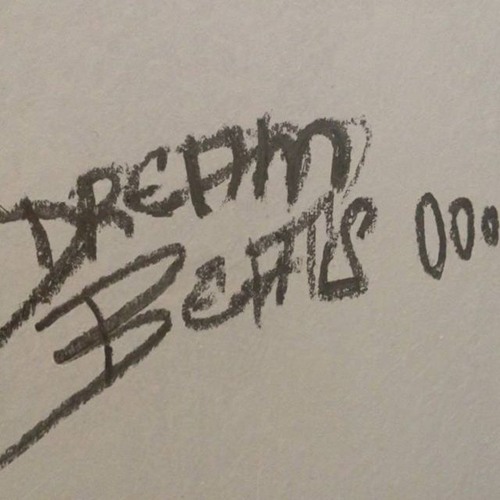 DREAM
BEATS ooo